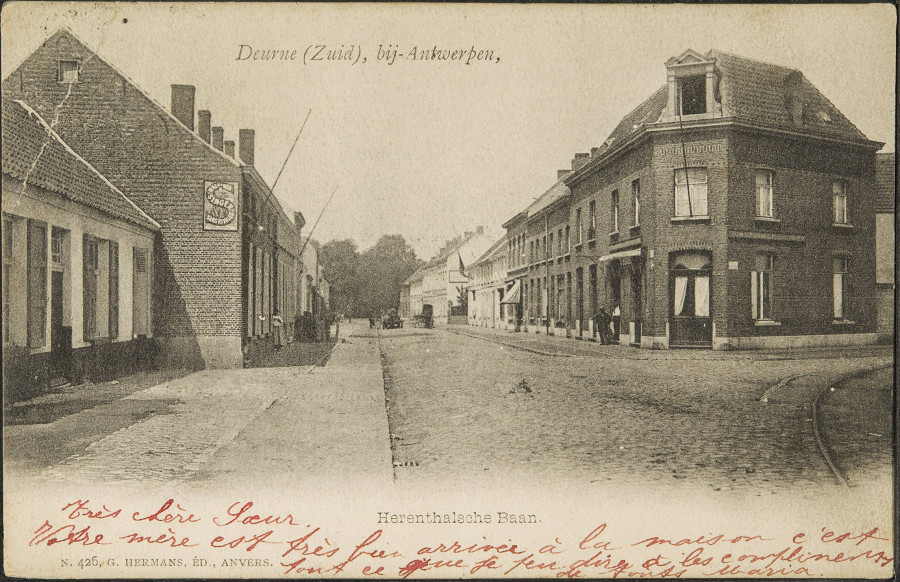 Deurne (Zuid), bij-Antwerpen,
SINGER
Très chère Sœur.
Herenthalsche Baan.
Votre mère est très bien arrivée à la maison c'est
N. 426, G. HERMANS, ÉD., ANVERS.
tout ce que je peu dire à les compliments
de touts Maria